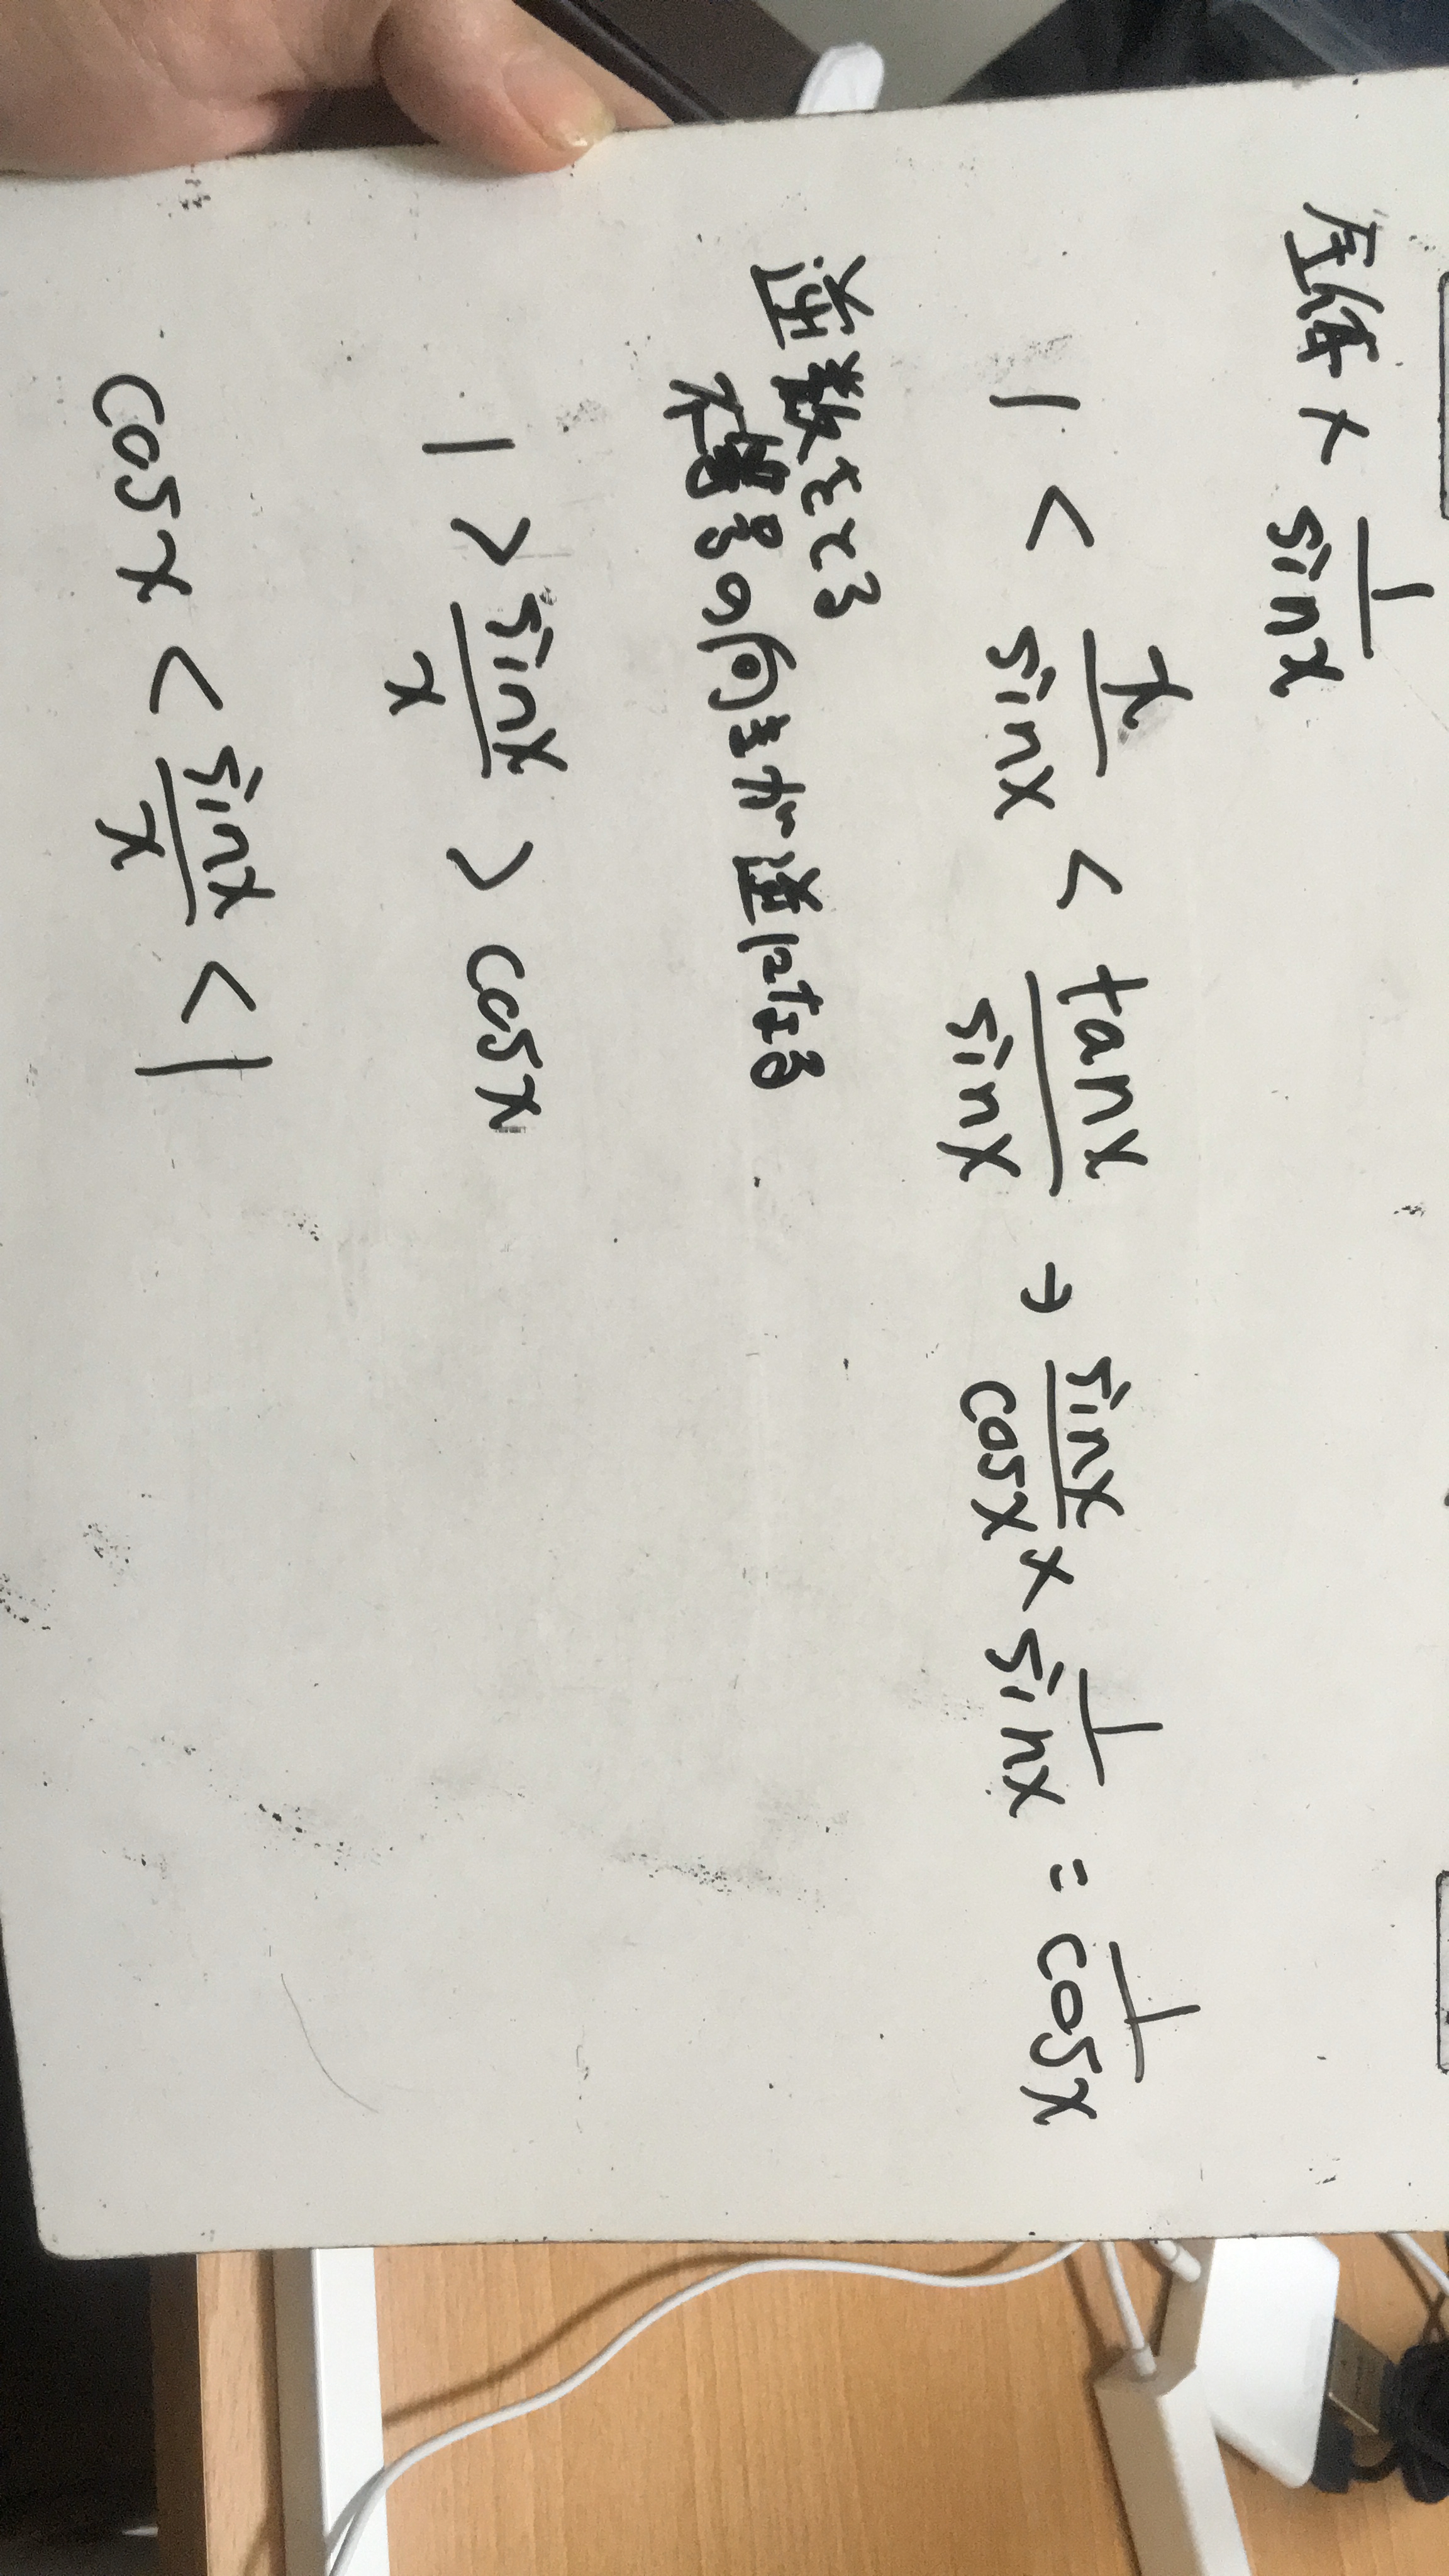 全体 × 1/sinx
1 < x/sinx < tanx/sinx → sinx/cosx × 1/sinx = 1/cosx
逆数をとる
不等号の向きが逆になる
1 > sinx/x > cosx
cosx < sinx/x < 1